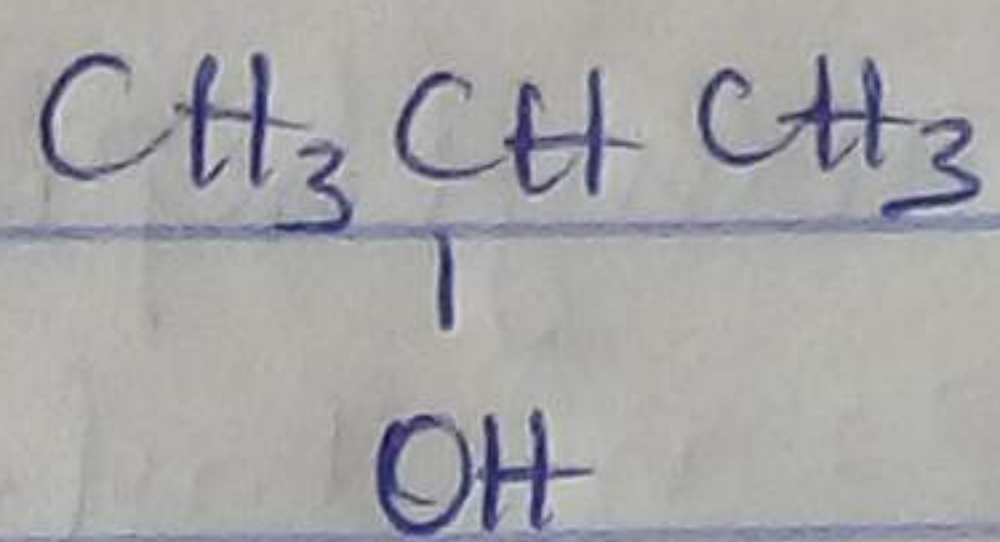 CH₃ CH CH₃
|
OH